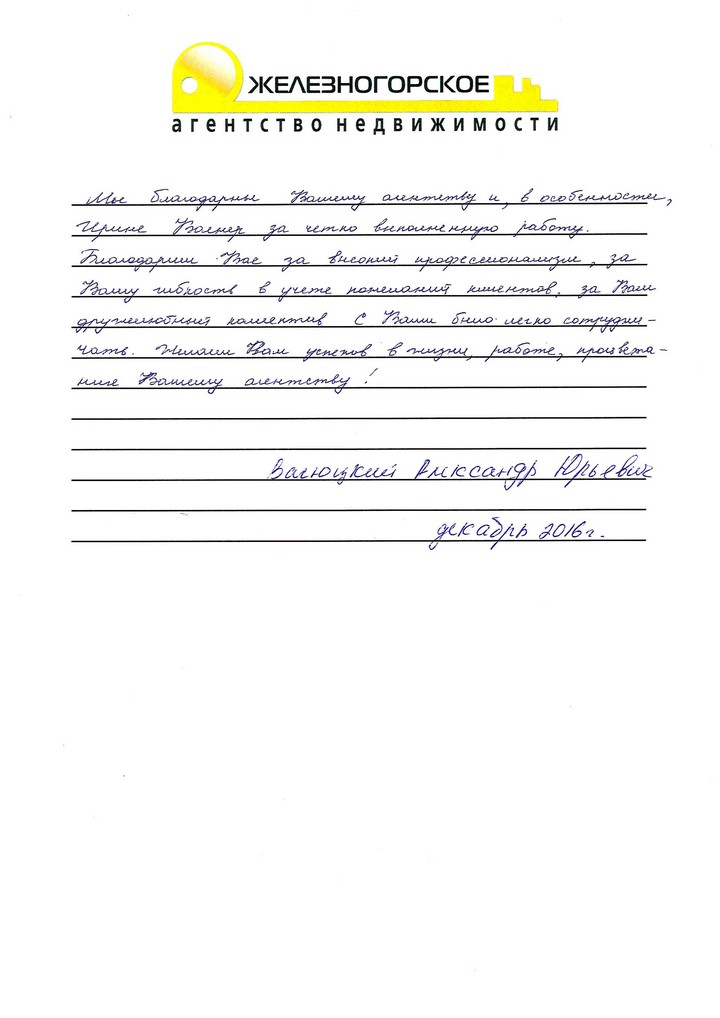 ЖЕЛЕЗНОГОРСКОЕ
агентство недвижимости
Мы благодарны Вашему агентству и, в особенности,
Ирине Вагнер за четко выполненную работу.
Благодарим Вас за высокий профессионализм, за
Вашу гибкость в учете пожеланий клиентов, за Ваш
дружелюбный коллектив С Вами было легко сотрудни-
чать. Желаем Вам успехов в жизни, работе, процвета-
ние Вашему агентству!
Александр Юрьевич
декабрь 2016г.